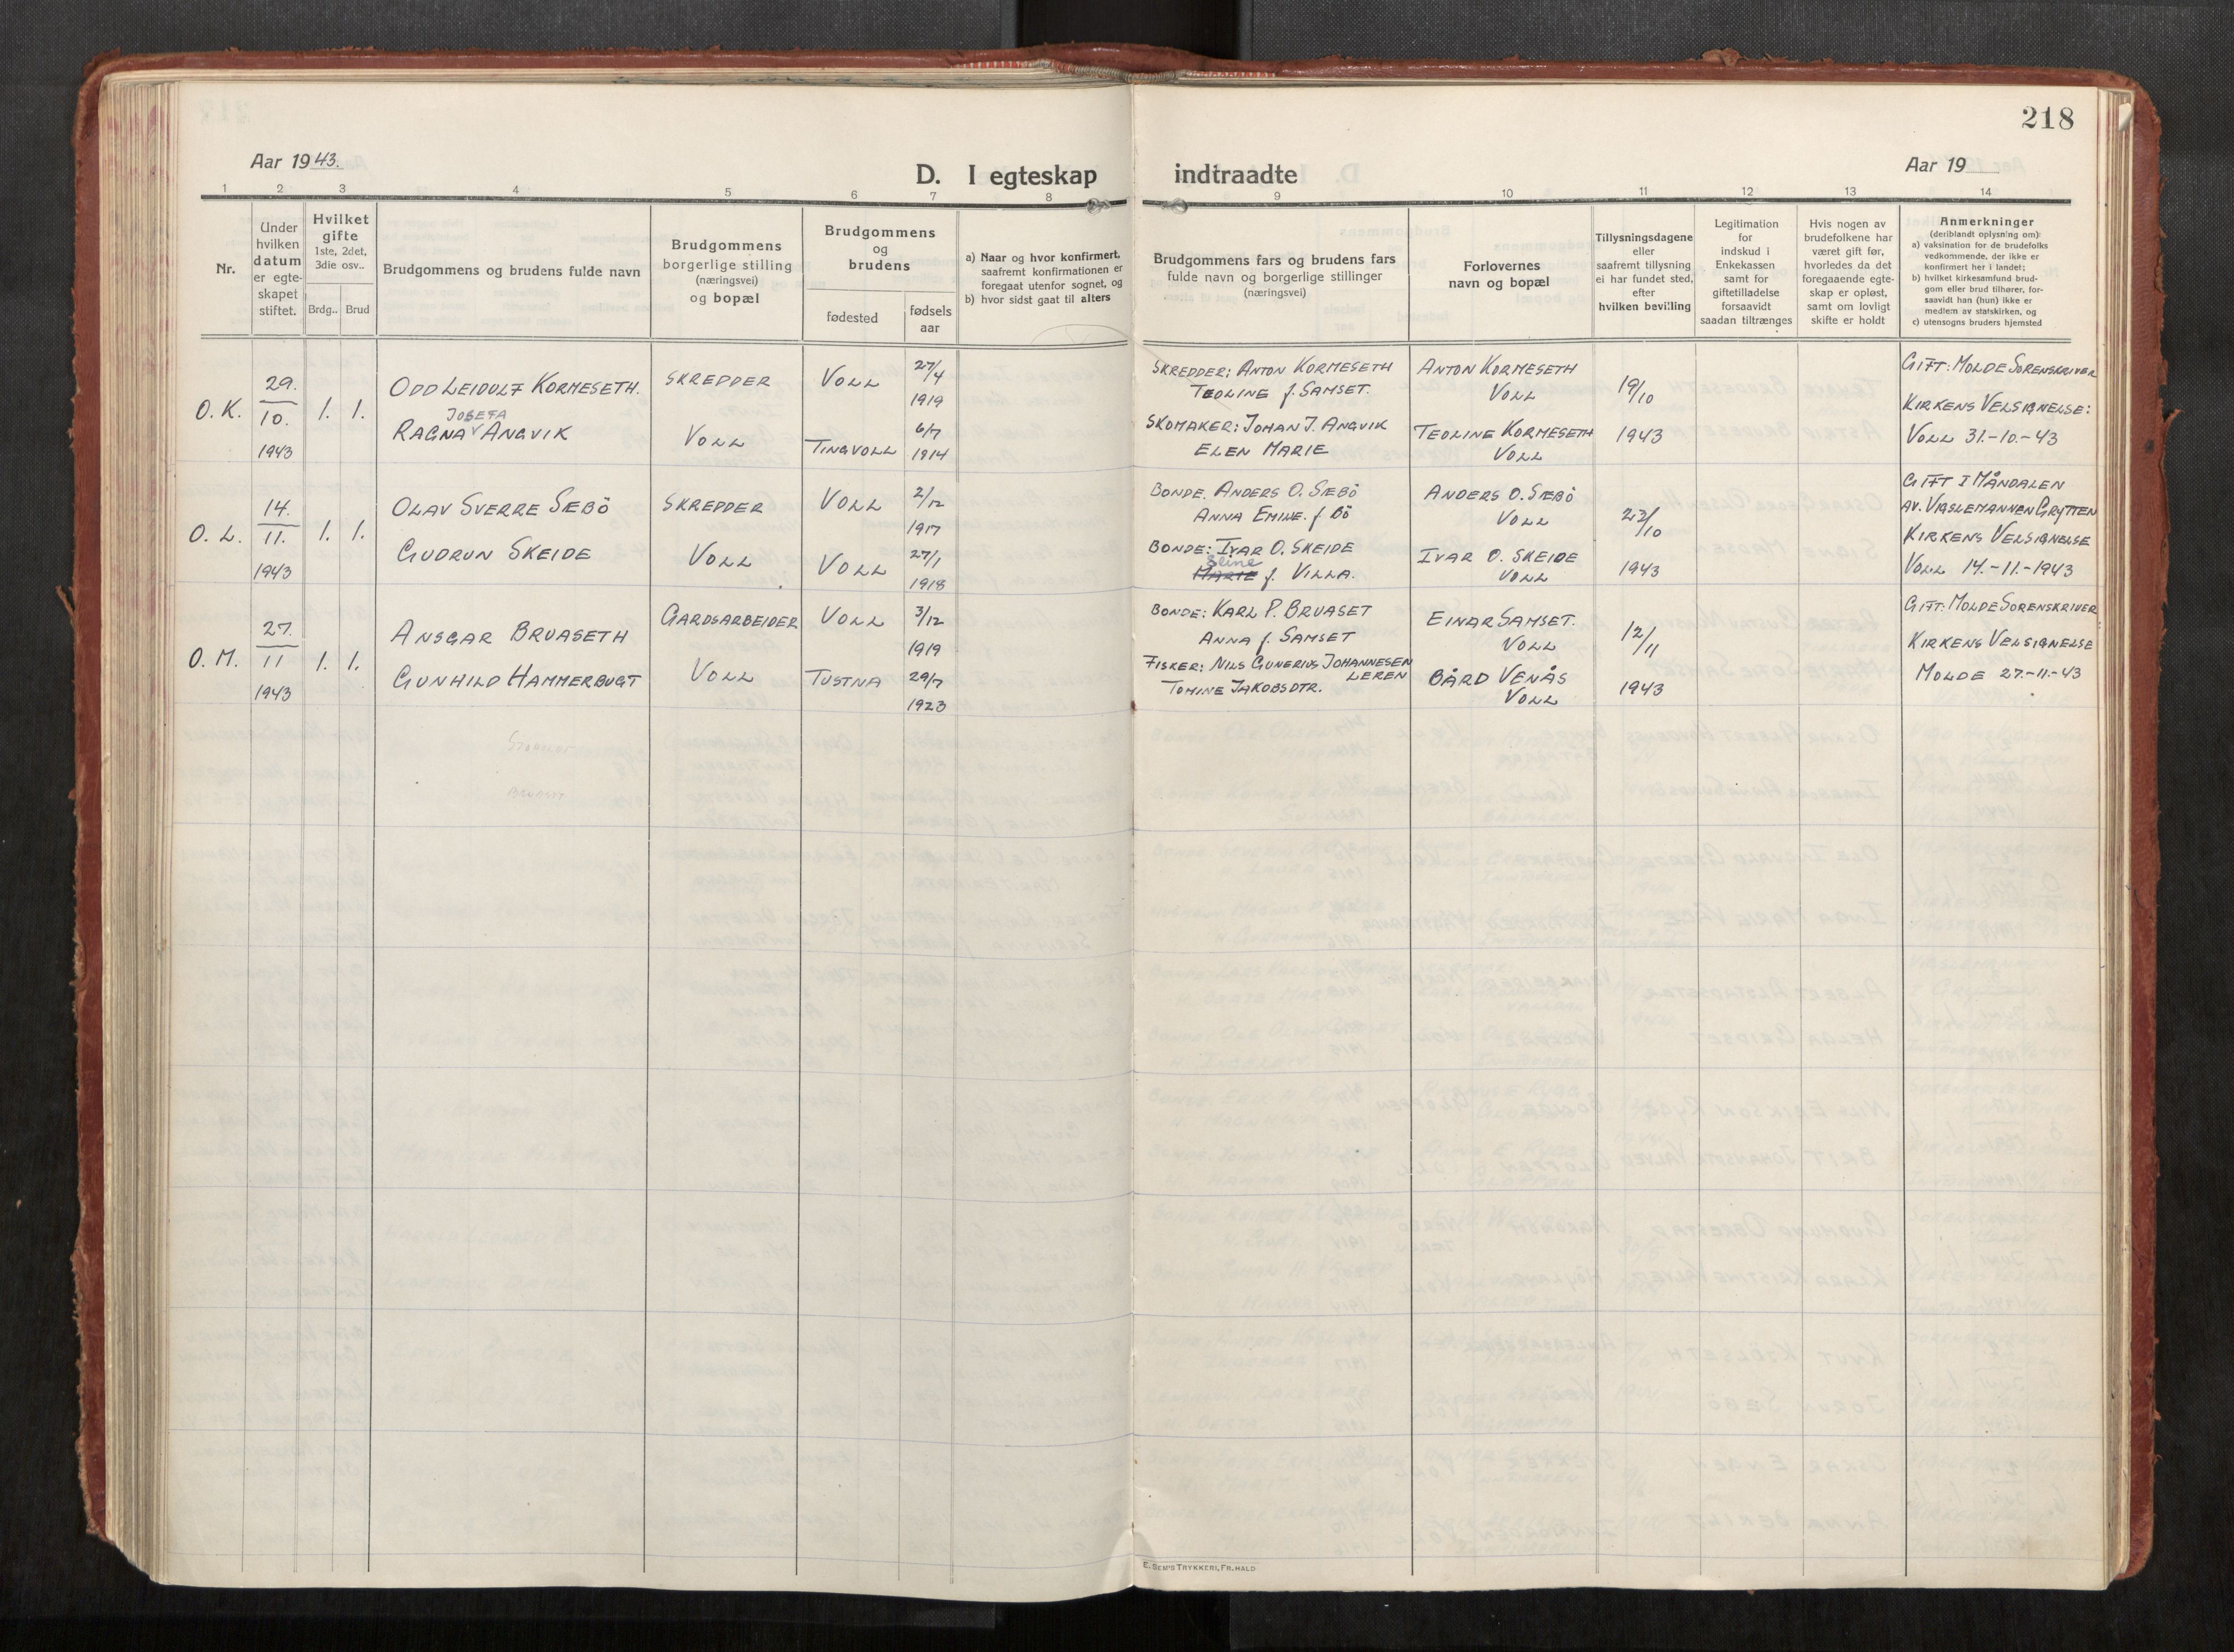 218
Aar 1943.
D. I egteskap indtraadte
Aar 19
1 2 3 4 5 6 7 8 9 10 11 12 13 14
Nr.
Under
hvilken
datum
er egte-
skapet
stiftet.
Hvilket
gifte
1ste, 2det,
3die osv..
Brdg.. Brud
Brudgommens og brudens fulde navn
Brudgommens
borgerlige stilling
(næringsvei)
og bopæl
Brudgommens
og
brudens
fødested
fødsels
aar
a) Naar og hvor konfirmert,
saafremt konfirmationen er
foregaat utenfor sognet, og
b) hvor sidst gaat til alters
Brudgommens fars og brudens fars
fulde navn og borgerlige stillinger
(næringsvei)
Forlovernes
navn og bopæl
Tillysningsdagene
eller
saafremt tillysning
ei har fundet sted,
efter
hvilken bevilling
Legitimation
for
indskud i
Enkekassen
samt for
giftetilladelse
forsaavidt
saadan tiltrænges
Hvis nogen av
brudefolkene har
været gift før,
hvorledes da det
foregaaende egte-
skap er opløst,
samt om lovligt
skifte er holdt
Anmerkninger
(deriblandt oplysning om):
a) vaksination for de brudefolks
vedkommende, der ikke er
konfirmert her i landet;
b) hvilket kirkesamfund brud-
gom eller brud tilhører, for-
saavidt han (hun) ikke er
medlem av statskirken, og
c) utensogns bruders hjemsted
O. K.
29.
10.
1943
1. 1.
ODD LEIDULF KORMESETH.
JOSEFA
RAGNA ANGVIK
SKREDDER
VOLL
VOLL
TINGVOLL
27/4
1919
6/7
1914
SKREDDER: ANTON KORMESETH
TEOLINE f. SAMSET.
SKOMAKER: JOHAN J. ANGVIK
ELEN MARIE
ANTON KORMESETH
VOLL
TEOLINE KORMESETH
VOLL
19/10
1943
GIFT: MOLDE SORENSKRIVER
KIRKENS VELSIGNELSE:
VOLL 31.-10.-43
O. L.
14.
11.
1943
1. 1.
OLAV SVERRE SÆBÖ
GUDRUN SKEIDE
SKREDDER
VOLL
VOLL
VOLL
2/12
1917
27/1
1918
BONDE. ANDERS O. SÆBÖ
ANNA EMILIE. f BÖ
BONDE: IVAR O. SKEIDE
Seline
MARIE f. VILLA.
ANDERS O. SÆBÖ
VOLL
IVAR O. SKEIDE
VOLL
23/10
1943
GIFT I MÅNDALEN
AV. VIGSLEMANNEN GRYTTEN
KIRKENS VELSIGNELSE
VOLL 14.-11.-1943
O. M.
27.
11
1943
1. 1.
ANSGAR BRUASETH
GUNHILD HAMMERBUGT
GARDSARBEIDER
VOLL
VOLL
TUSTNA
3/12
1919
29/7
1923
BONDE: KARL P. BRUASET
ANNA f. SAMSET
FISKER: NILS GUNERIUS JOHANNESEN
LEREN
TOMINE JAKOBSDTR.
EINAR SAMSET.
VOLL
BÅRD VENÅS
VOLL
12/11
1943
GIFT: MOLDE SORENSKRIVER
KIRKENS VELSIGNELSE
MOLDE 27.-11.-43
BRUASET
E. SEM'S TRYKKERI, FR. HALD